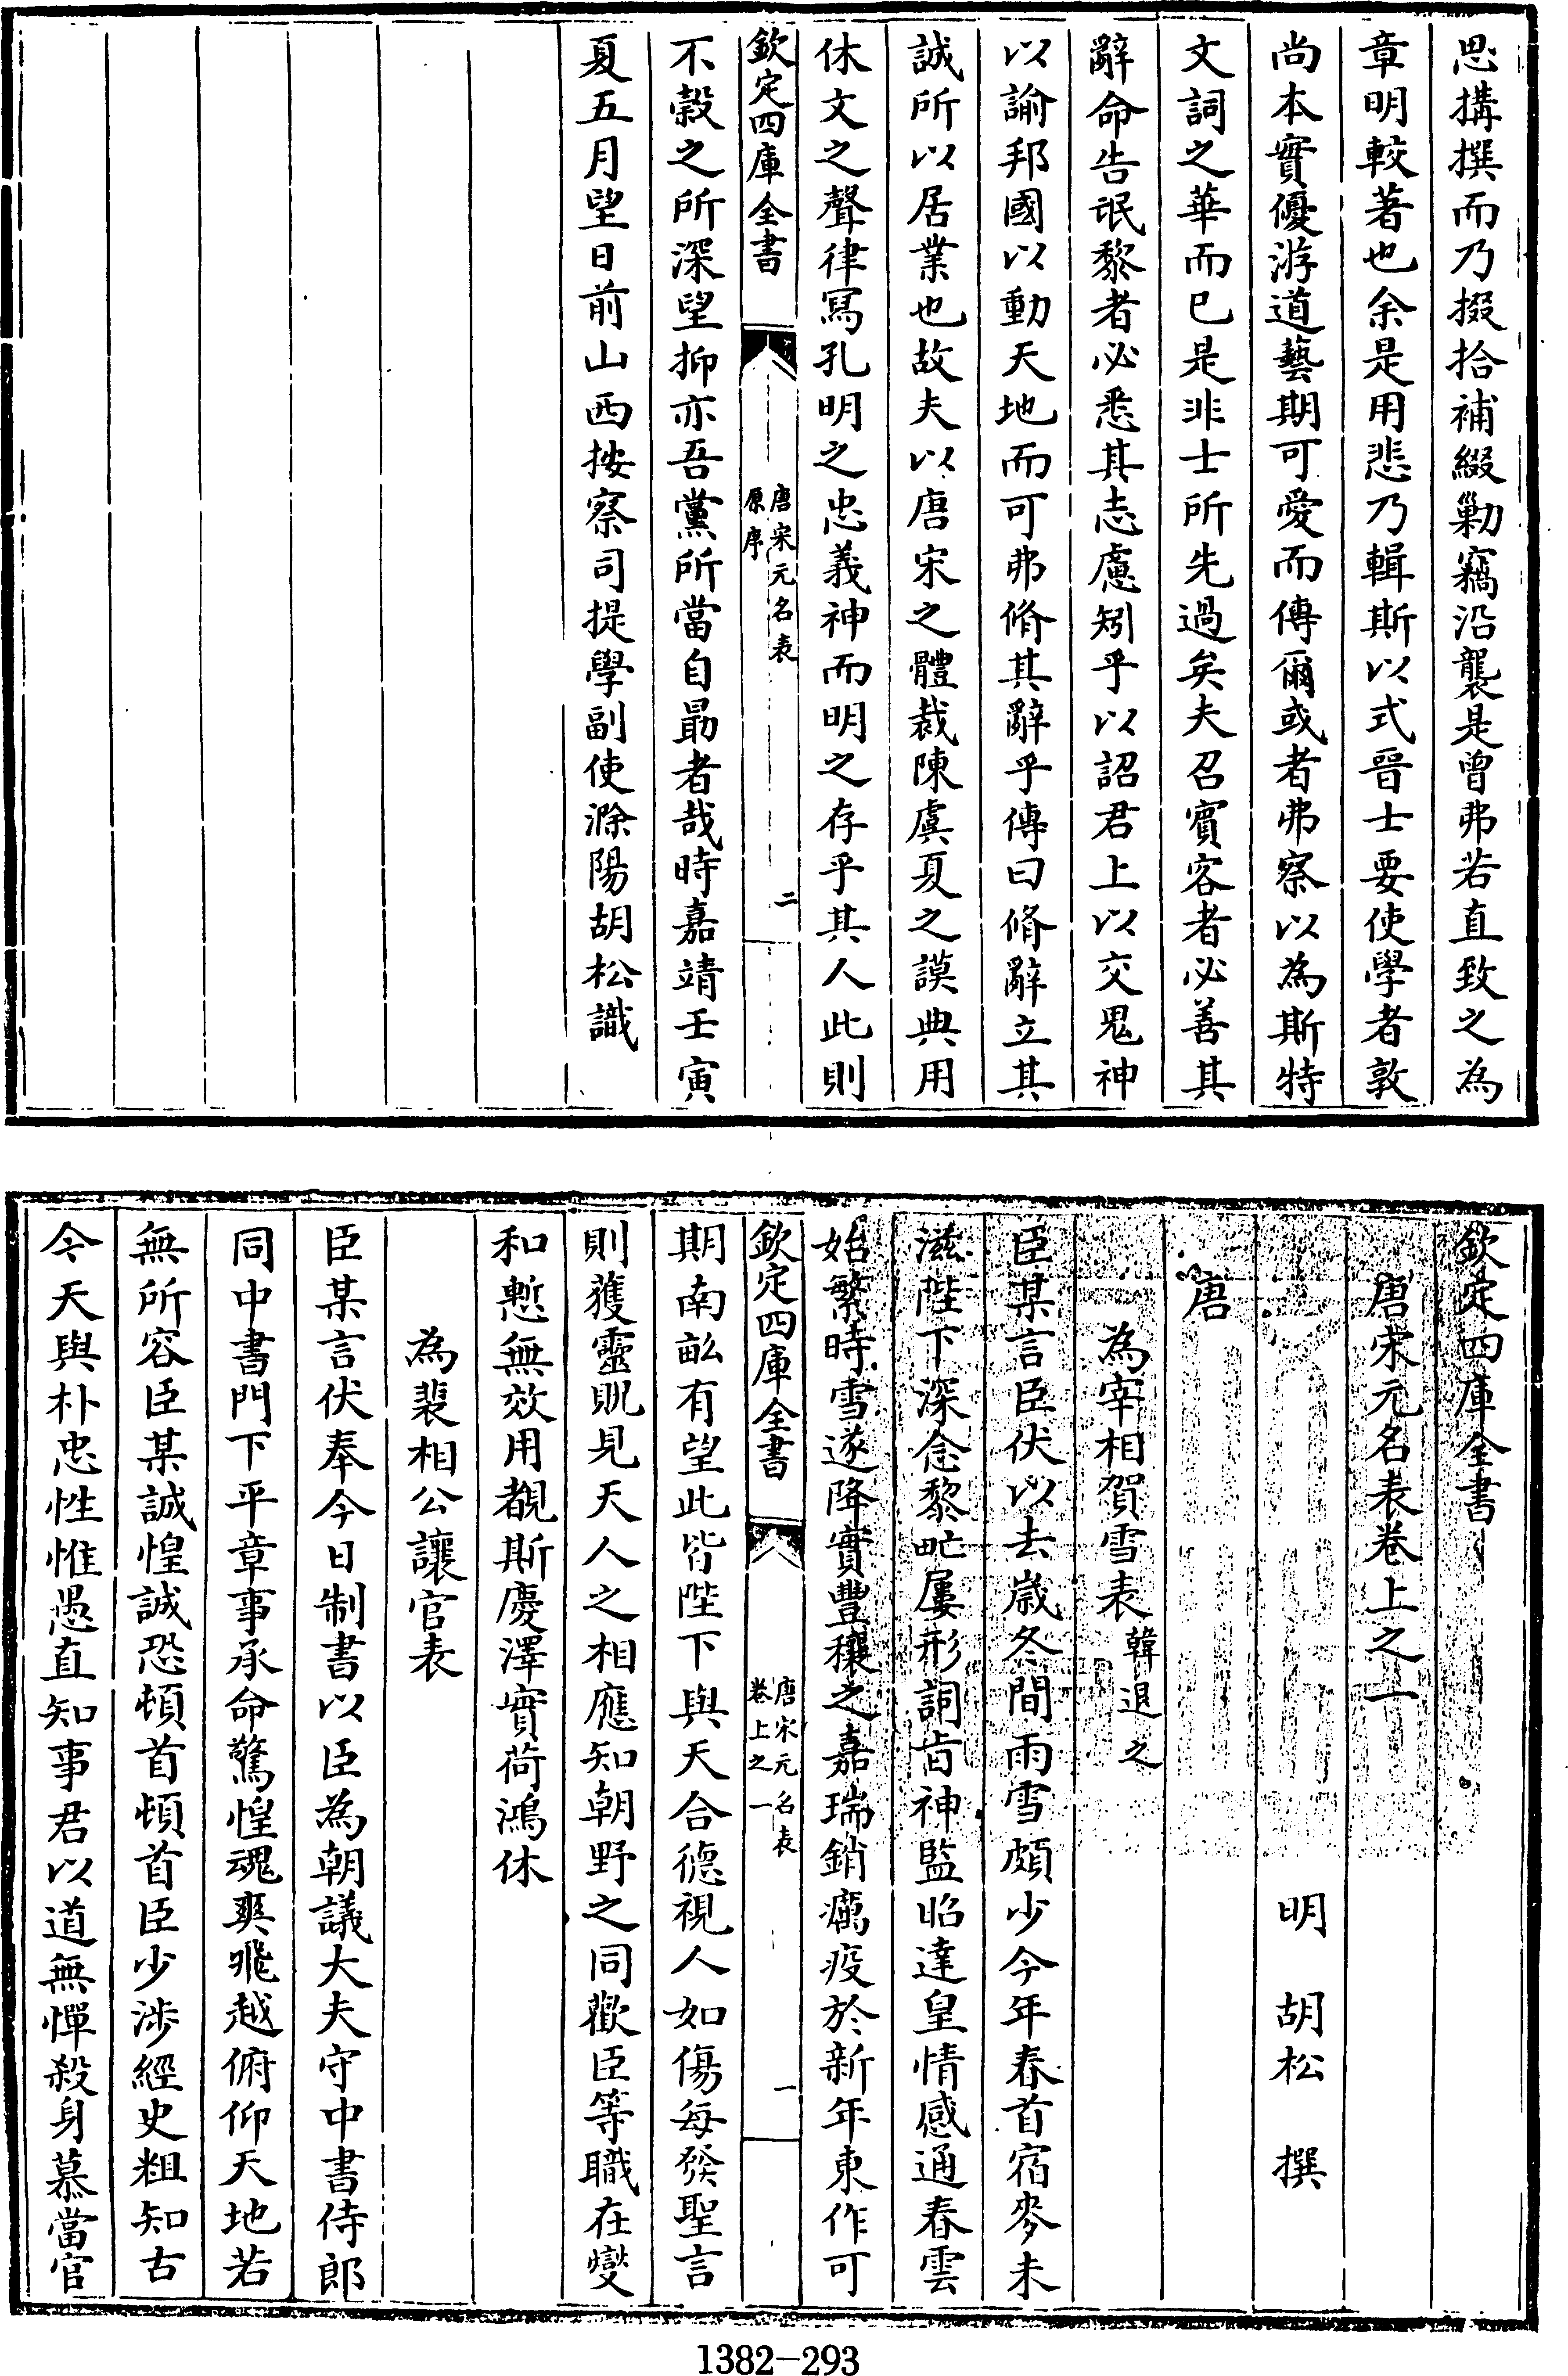 思搆撰而乃掇拾補綴勦竊沿襲是曾弗若直致之為
章明較著也余是用悲乃輯斯以式晉士要使學者敦
尚本實優游道藝期可愛而傳爾或者弗察以為斯特
文詞之華而已是非士所先過矣夫召賓客者必善其
辭命告氓黎者必悉其志慮矧乎以詔君上以交鬼神
以諭邦國以動天地而可弗脩其辭乎傳曰脩辭立其
誠所以居業也故夫以唐宋之體裁陳虞夏之謨典用
休文之聲律寫孔明之忠義神而明之存乎其人此則
欽定四庫全書
唐宋元名表
原序
二
不穀之所深望抑亦吾黨所當自勗者哉時嘉靖壬寅
夏五月望日前山西按察司提學副使滁陽胡松識
欽定四庫全書
唐宋元名表卷上之一
明 胡松 撰
唐
為宰相賀雪表 韓退之
臣某言臣伏以去歲冬間雨雪頗少今年春首宿麥未
滋陛下深念黎甿屢形詞旨神監昭達皇情感通春雲
始繁時雪遂降實豐穰之嘉瑞銷癘疫於新年東作可
欽定四庫全書
唐宋元名表
卷上之一
一
期南畝有望此皆陛下與天合德視人如傷每發聖言
則獲靈貺見天人之相應知朝野之同歡臣等職在燮
和慙無效用覩斯慶澤實荷鴻休
為裴相公讓官表
臣某言伏奉今日制書以臣為朝議大夫守中書侍郎
同中書門下平章事承命驚惶魂爽飛越俯仰天地若
無所容臣某誠惶誠恐頓首頓首臣少涉經史粗知古
今天與朴忠性惟愚直知事君以道無憚殺身慕當官
1382-293